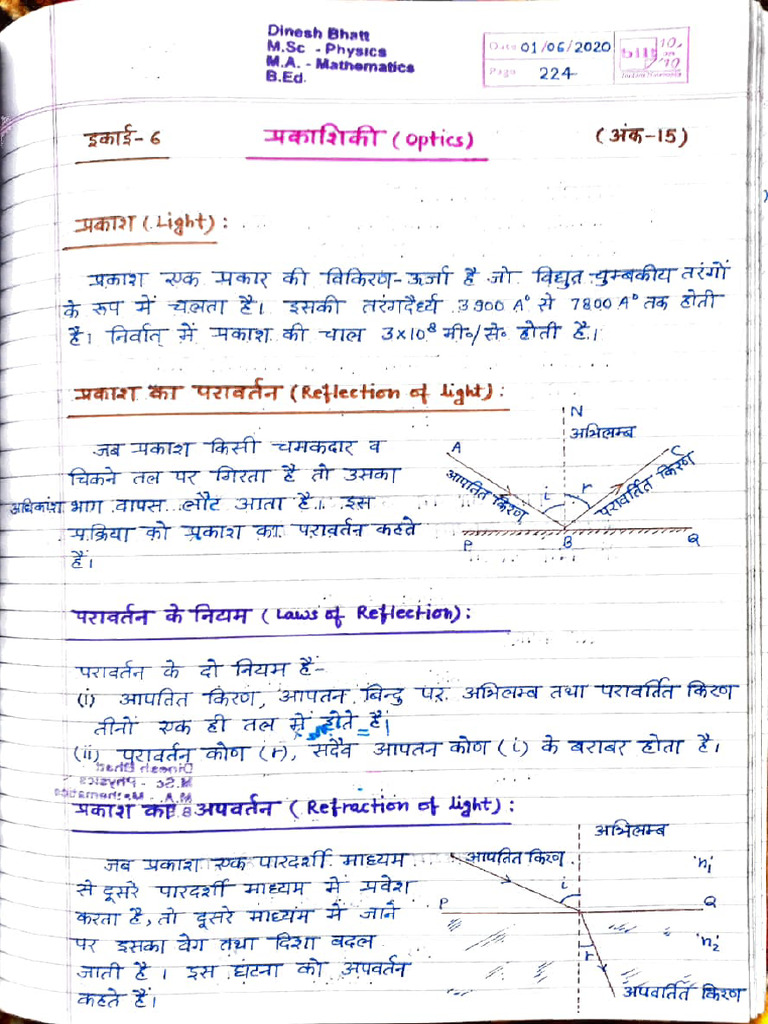 Dinesh Bhatt
M.Sc - Physics
M.A. - Mathematics
B.Ed.
Date 01/06/2020
Page 224
इकाई- 6 प्रकाशिकी (Optics) (अंक-15)
प्रकाश (Light) :
प्रकाश एक प्रकार की विकिरण-ऊर्जा है जो विद्युत चुम्बकीय तरंगों
के रूप में चलता है। इसकी तरंगदैर्ध्य 3900 A° से 7800 A° तक होती
है। निर्वात् में प्रकाश की चाल 3×10⁸ मी०/से० होती है।
प्रकाश का परावर्तन (Reflection of light) :
जब प्रकाश किसी चमकदार व
चिकने तल पर गिरता है तो उसका
अधिकांश भाग वापस लौट आता है। इस
प्रक्रिया को प्रकाश का परावर्तन कहते
हैं।
N
अभिलम्ब
A
C
आपतित किरण
i
r
परावर्तित किरण
P
B
Q
परावर्तन के नियम (Laws of Reflection) :
परावर्तन के दो नियम हैं-
(i) आपतित किरण, आपतन बिन्दु पर अभिलम्ब तथा परावर्तित किरण
तीनों एक ही तल में होते हैं।
(ii) परावर्तन कोण (r), सदैव आपतन कोण (i) के बराबर होता है।
प्रकाश का अपवर्तन (Refraction of light) :
जब प्रकाश एक पारदर्शी माध्यम
से दूसरे पारदर्शी माध्यम में प्रवेश
करता है, तो दूसरे माध्यम में जाने
पर इसका वेग तथा दिशा बदल
जाती है। इस घटना को अपवर्तन
कहते हैं।
अभिलम्ब
आपतित किरण
'n₁'
i
P
Q
'n₂'
r
अपवर्तित किरण